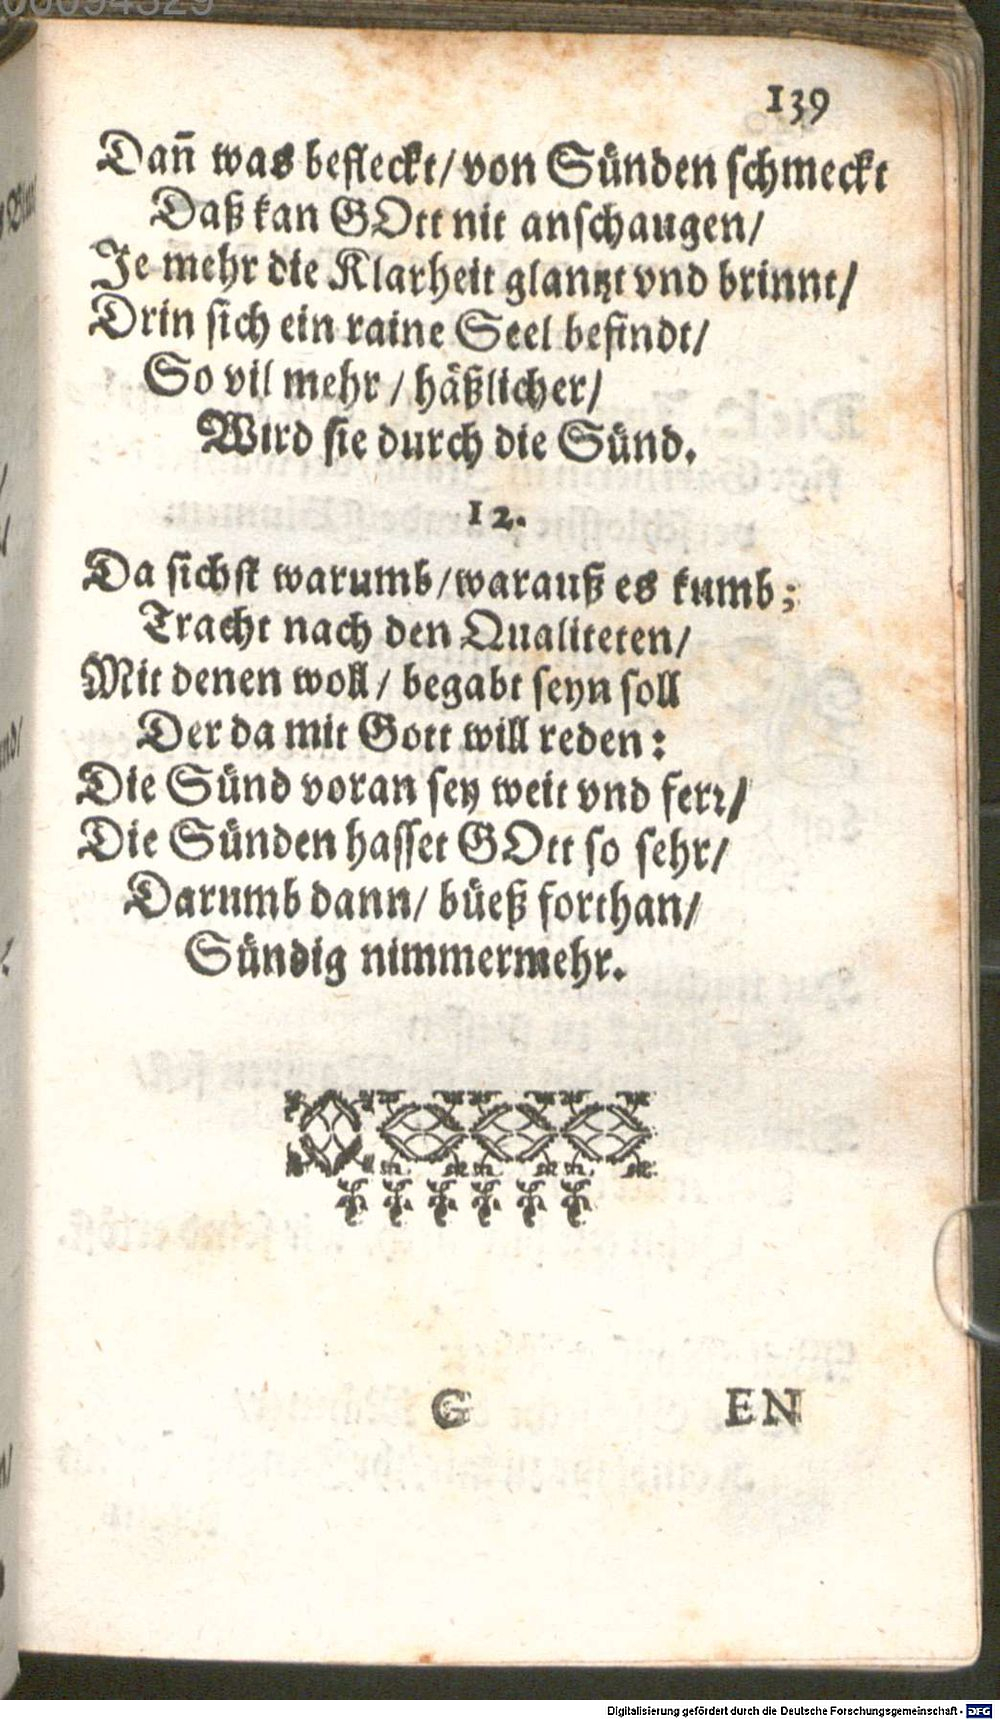 139
Dañ was befleckt/ von Sünden schmeckt
Daß kan GOtt nit anschaugen/
Je mehr die Klarheit glantzt vnd brinnt/
Drin sich ein raine Seel befindt/
So vil mehr / häßlicher/
Wird sie durch die Sünd.
12.
Da sichst warumb/ warauß es kumb;
Tracht nach den Qualiteten/
Mit denen woll/ begabt seyn soll
Der da mit Gott will reden:
Die Sünd voran sey weit vnd ferr/
Die Sünden hasset GOtt so sehr/
Darumb dann/ büeß forthan/
Sündig nimmermehr.
G EN
Digitalisierung gefördert durch die Deutsche Forschungsgemeinschaft - DFG